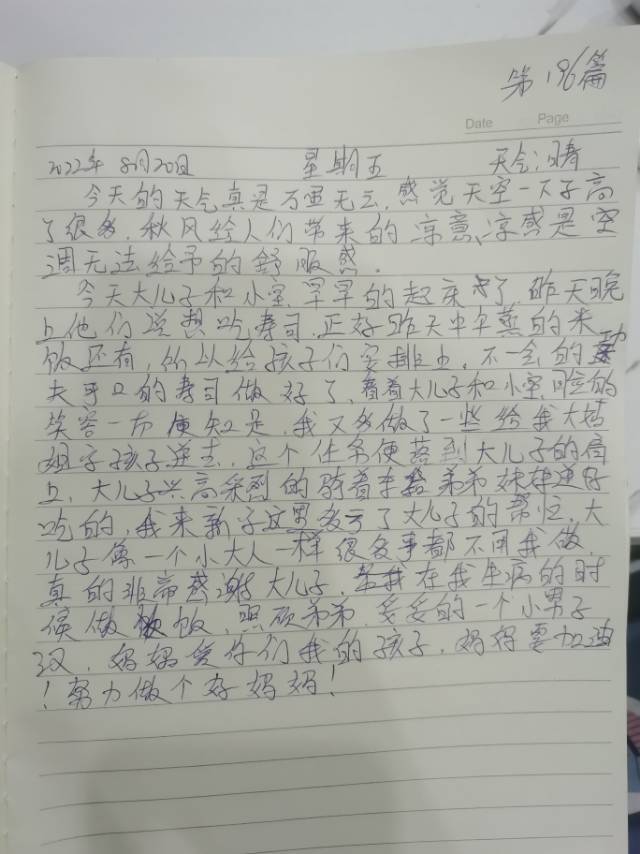 第196篇
Date Page
2022年 8月20日 星期五 天气:晴
今天的天气真是万里无云,感觉天空一下子高
了很多,秋风给人们带来的凉意、凉感是空
调无法给予的舒服感.
今天大儿子和小宝早早的起来了,昨天晚
上他们说想吃寿司,正好昨天中午蒸的米
饭还有,所以给孩子们安排上,不一会的功
夫手口的寿司做好了,看着大儿子和小宝
笑容一 是,我又多做了一些给我大姑
姐家孩子送去,这个任务便落到大儿子的肩
上,大儿子兴高采烈的骑着车给弟弟妹妹送好
吃的,我来新子这里多亏了大儿子的帮忙,大
儿子像一个小大人一样很多事都不用我做,
真的非常感谢大儿子,在我生病的时
候做饭,照顾弟弟,妥妥的一个小男子
汉,妈妈爱你们我的孩子,妈妈要加油
!努力做个好妈妈!